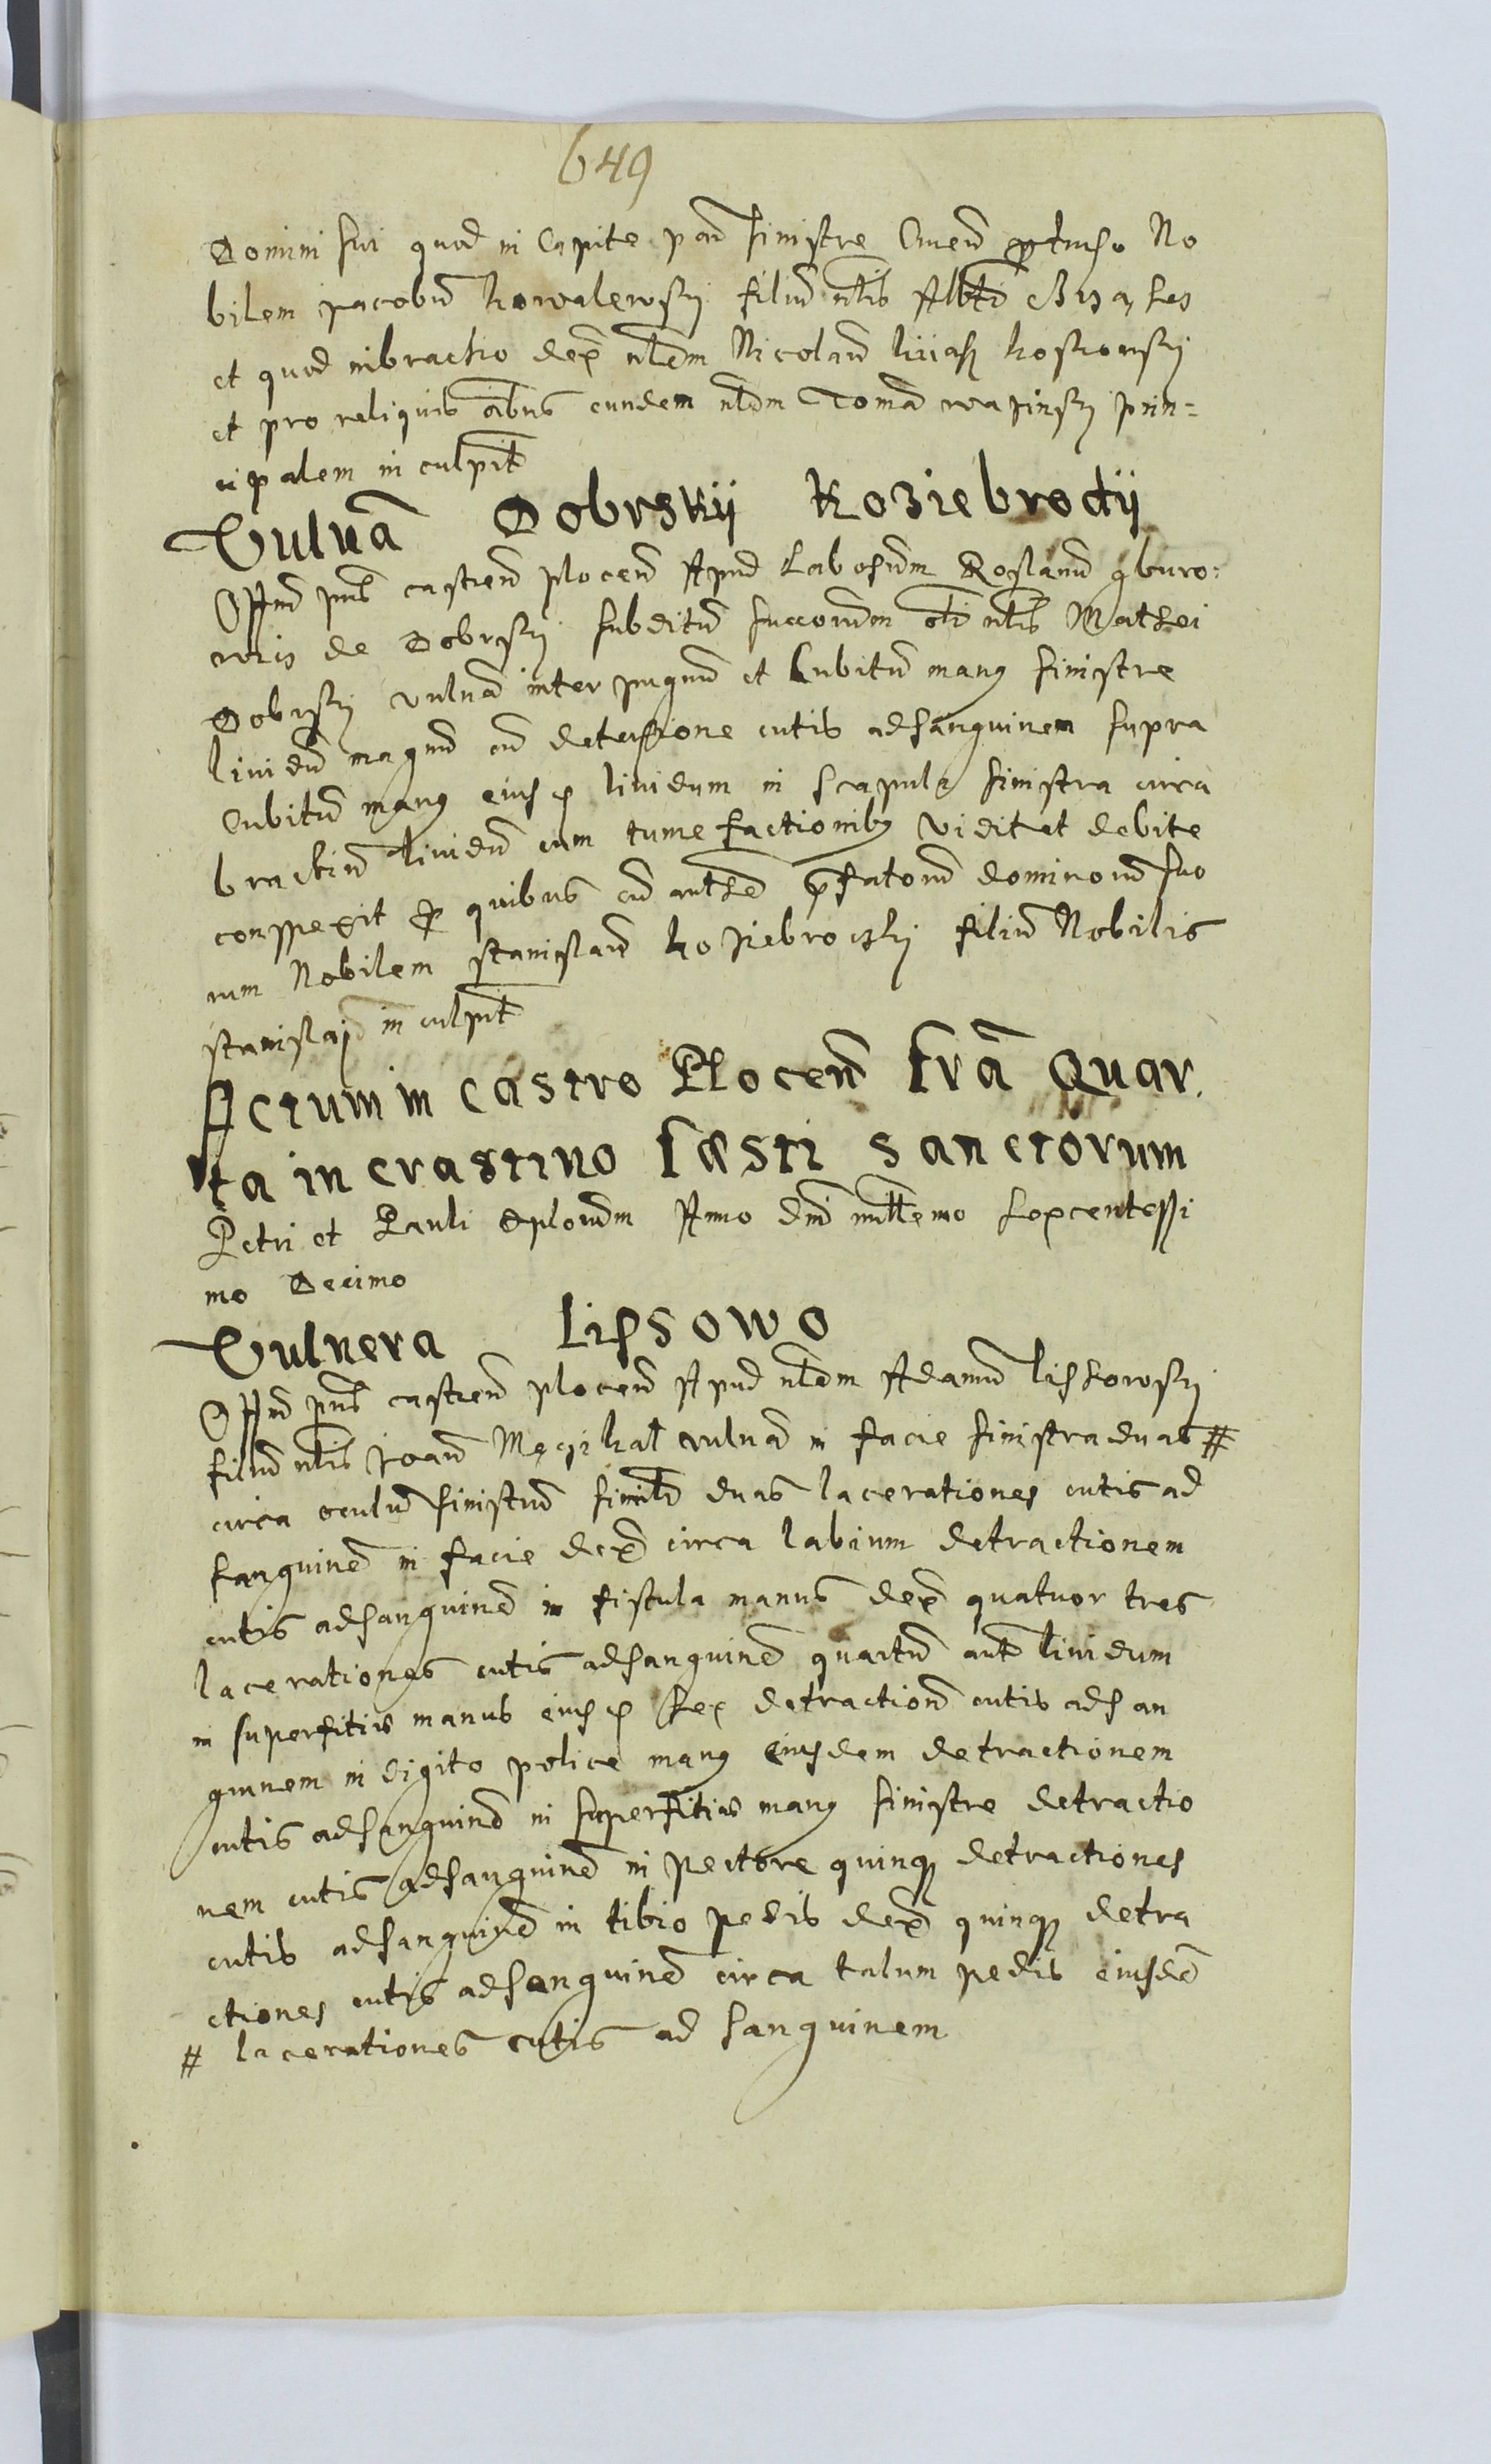 649
Domini sui quod in Capite par sinistre Cruen pertuso No
bilem Jacobū Kowalewsky filiū nlis Alb̃ti
et quod in brachio dex nlem Nicolaū Kostowsky
et pro reliquis oibus eundem nlem Tomā wapinsky prin=
cipalem in culpit
Vulnā Dobrskij Koziebrodij
Offm pns castren plocen Apud Labosum Roslanū gburo=
wic de Dobrsky subditū succorum nlis Mathei
Dobrsky vulnā inter pugnū et Cubitū manus sinistre
lividū magnū cū detersione cutis ad sanguinem supra
Cubitū manus eiusd lividum in scapula sinistra circa
brachiū lividū cum tumefactionibus vidit et debite
conspexit P quibus cū authē pfatorū dominorū suo
rum Nobilem stanislaū Koziebrodsky filiū Nobilis
stanislaj in culpit
Actum in castro Plocen fr̃a Quar
ta in crastino fæsti sanctorum
Petri et Pauli Aplorum Anno Dni millemo sexcentessi
mo Decimo
Vulnera Lissowo
Offm pns castren plocen Apud nlem Adamū lissowsky
filiū nlis Joan vulnā in facie sinistra duas #
circa oculū sinistrū similr duas lacerationes cutis ad
sanguinē in facie dex circa labium detractionem
cutis ad sanguinē in fistula manus dex quatuor tres
lacerationes cutis ad sanguinē quartū autē lividum
in superfitiis manus eiusd sex detractionē cutis ad san
guinem in digito police manus eiusdem detractionem
cutis ad sanguinē in superfitias manus sinistre detractio
nem cutis ad sanguinē in pectore quinque detractiones
cutis ad sanguinē in tibio pedis dex quinque detra
ctiones cutis ad sanguinē circa talum pedis eiusdē
# lacerationes cutis ad sanguinem